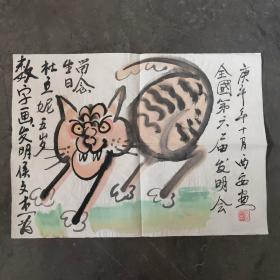 庚午年十月西安画
全國第六届发明会
留念
生日
杜亘妮五岁
数字画发明侯文术